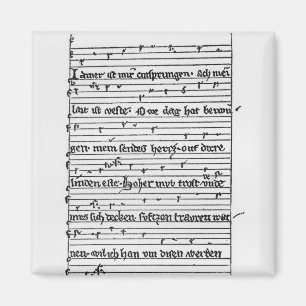 Iamer ist mir entsprungen · ach mei
lait ist veste : Owe dag hat
gen · mein sendes hertz · ouf dirre
linden este · hoher mvt trost vnde
mus sich decken suftzen trauren
nen · wil ich han vm disen werden